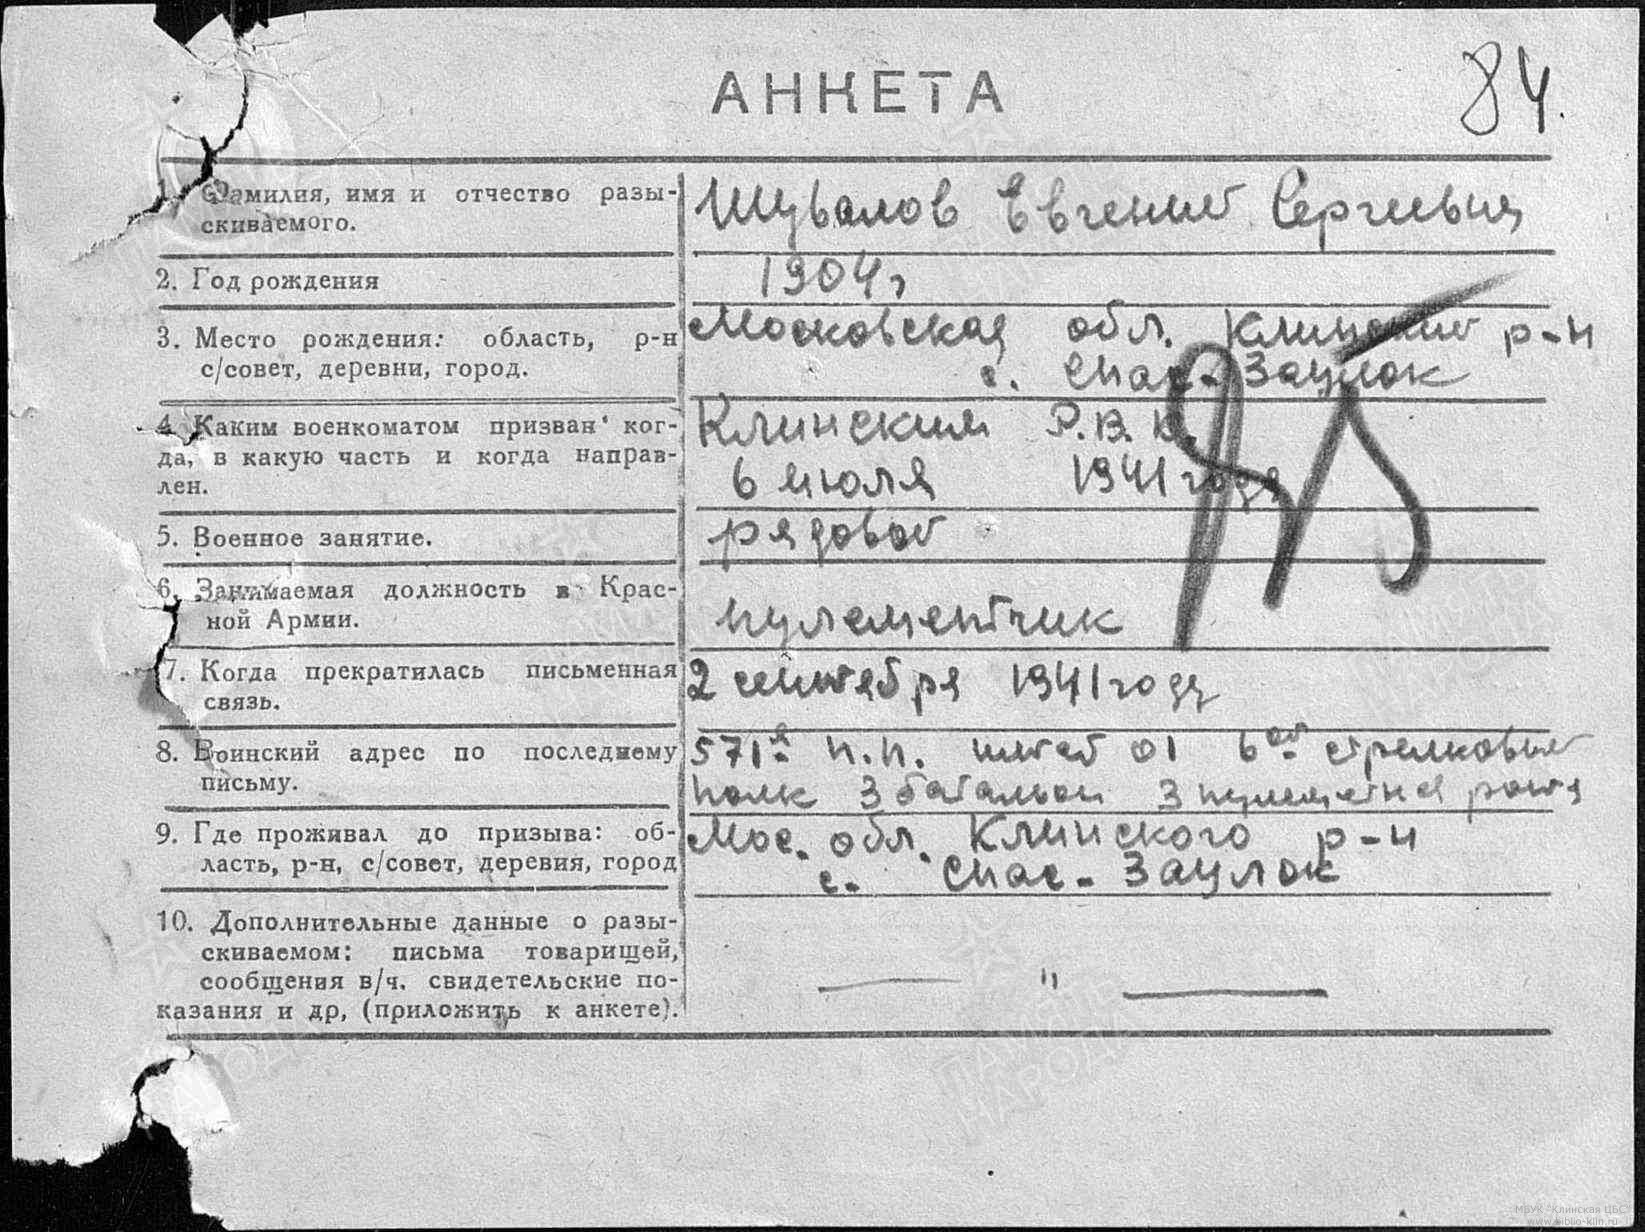 84.
АНКЕТА
1. Фамилия, имя и отчество разы-
скиваемого.
Шувалов Евгений Сергеевич
2. Год рождения
1904г
3. Место рождения: область, р-н
с/совет, деревни, город.
Московская обл. Клинский р-н
с. Спас-Заулок
4. Каким военкоматом призван ког-
да, в какую часть и когда направ-
лен.
Клинским Р.В.К.
6 июля 1941 года
5. Военное занятие.
рядовой
6. Занимаемая должность в Крас-
ной Армии.
пулеметчик
7. Когда прекратилась письменная
связь.
2 сентября 1941 году
8. Воинский адрес по последнему
письму.
571я п.п. 01 6ой стрелковый
полк 3 батальон 3 пулеметная рота
9. Где проживал до призыва: об-
ласть, р-н, с/совет, деревия, город
Мос. обл. Клинского р-н
с. Спас-Заулок
10. Дополнительные данные о разы-
скиваемом: письма товарищей,
сообщения в/ч. свидетельские по-
казания и др, (приложить к анкете).
— " —
ПАМЯТЬ
НАРОДА
МБУК "Клинская ЦБС"
www.biblio-klin.ru